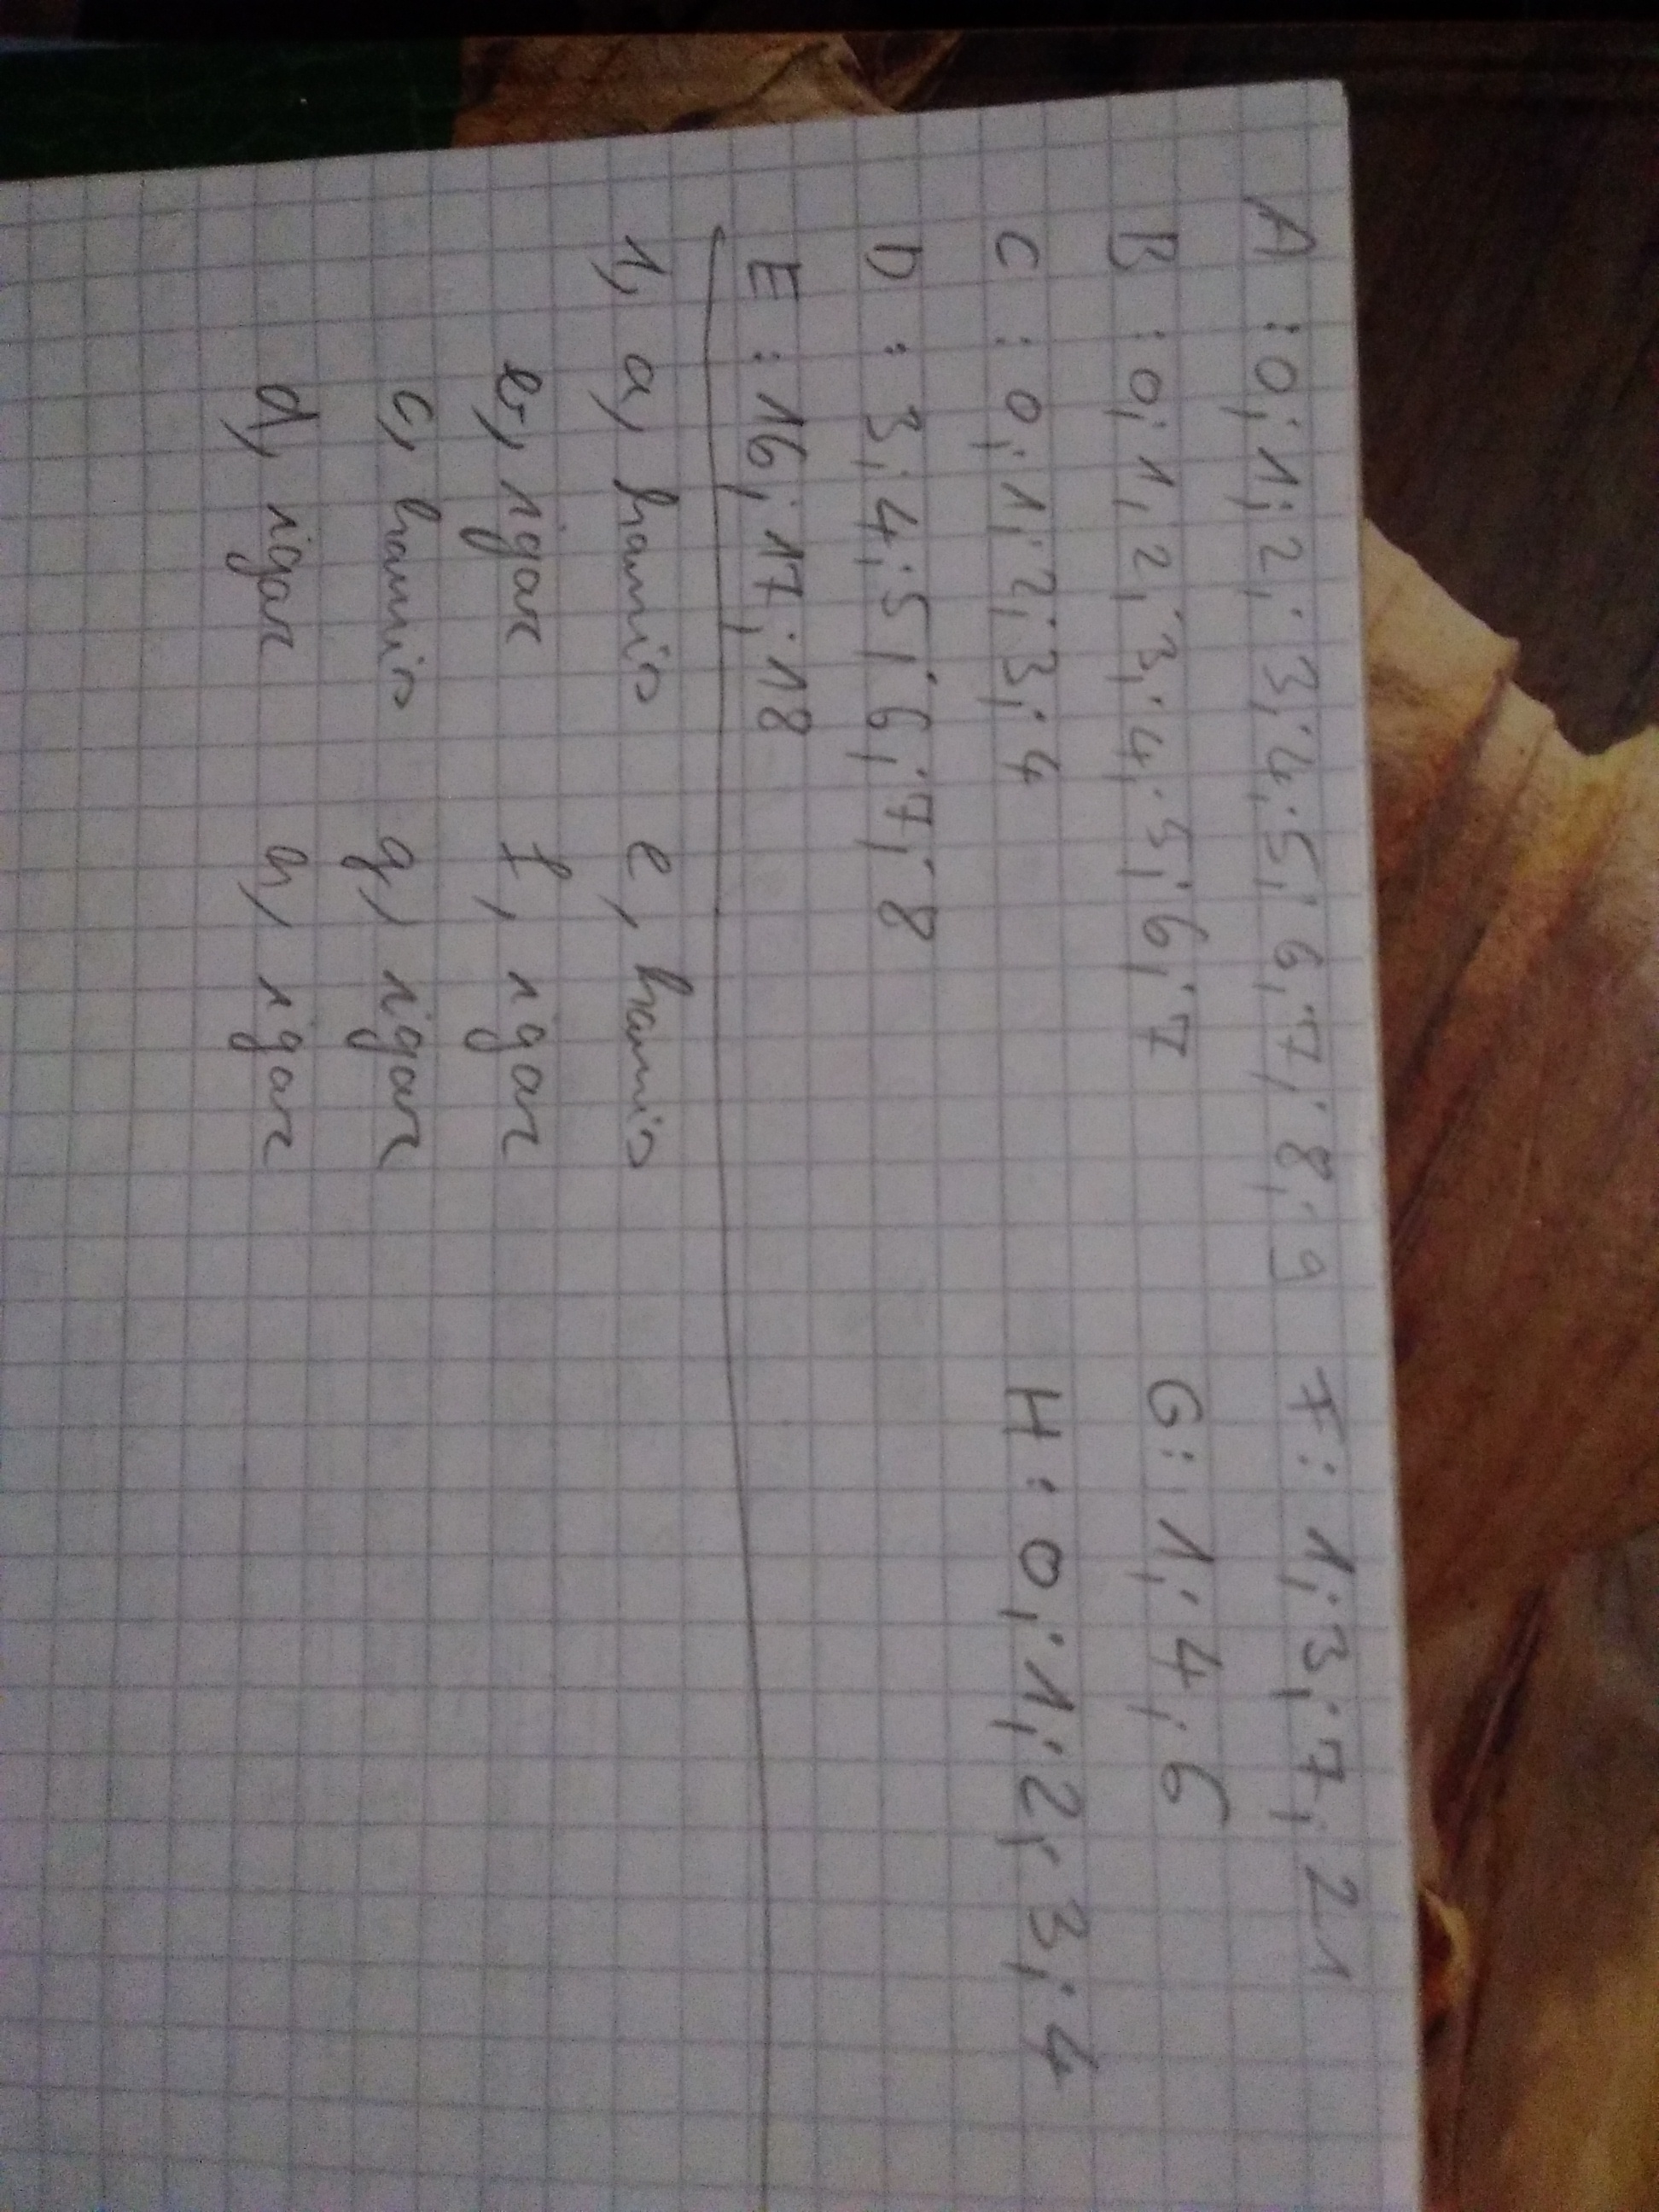 A : 0; 1; 2; 3; 4; 5; 6; 7; 8; 9
B : 0; 1; 2; 3; 4; 5; 6; 7
C : 0; 1; 2; 3; 4
D : 3; 4; 5; 6; 7; 8
E : 16; 17; 18
F : 1; 3; 7; 21
G : 1; 4; 6
H : 0; 1; 2; 3; 4
1, a, hamis
b, igaz
c, hamis
d, igaz
e, hamis
f, igaz
g, igaz
h, igaz